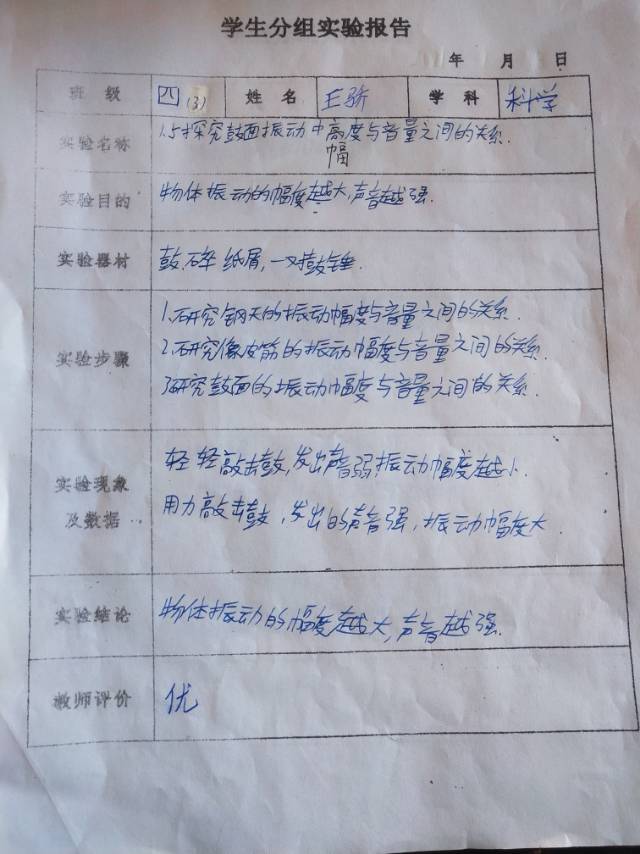 学生分组实验报告
年 月 日
班 级 四(3) 姓 名 王骄 学 科 科学
实验名称 1.5探究鼓面振动中高度与音量之间的关系.
幅
实验目的 物体振动的幅度越大,声音越强.
实验器材 鼓,碎纸屑,一对鼓锤.
实验步骤
1.研究钢尺的振动幅度与音量之间的关系.
2.研究像皮筋的振动幅度与音量之间的关系.
3研究鼓面的振动幅度与音量之间的关系.
实验现象
及数据
轻轻敲击鼓,发出声音弱,振动幅度越小.
用力敲击鼓,发出的声音强,振动幅度大
实验结论 物体振动的幅度越大,声音越强.
教师评价 优